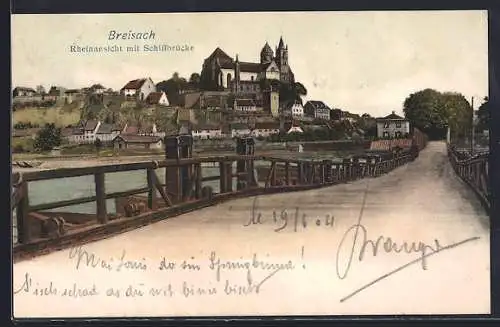 Breisach
Rheinansicht mit Schiffbrücke
le 19/6 04
Mai Louis do sin Springbrinne!
S'isch schad as dü nit binis bisch